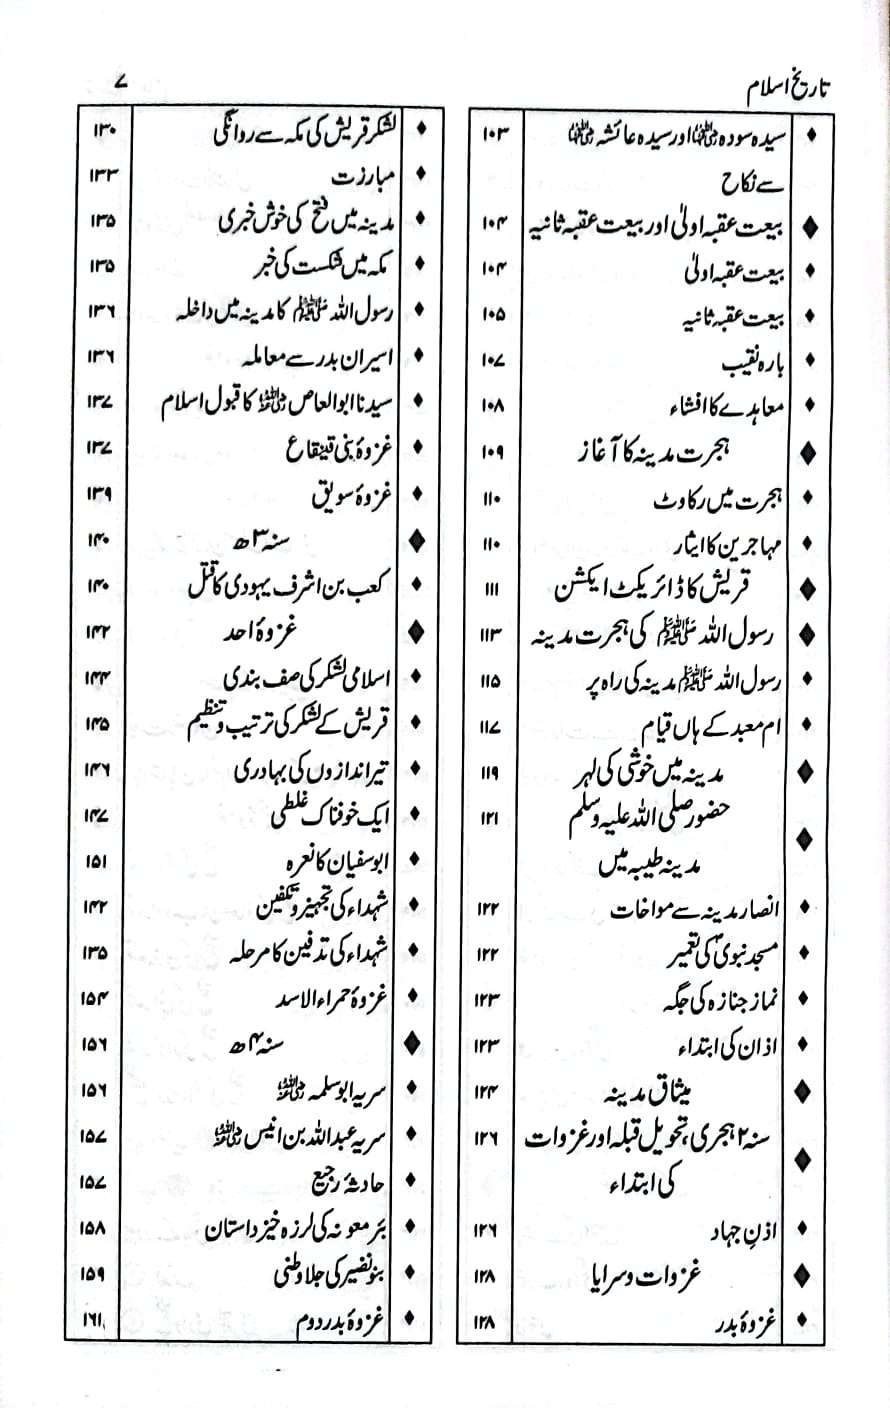 تاریخ اسلام ۷
♦ سیدہ سودہ رضی اللہ عنہا اور سیدہ عائشہ رضی اللہ عنہا ۱۰۳
سے نکاح
◆ بیعت عقبہ اولیٰ اور بیعت عقبہ ثانیہ ۱۰۴
♦ بیعت عقبہ اولیٰ ۱۰۴
♦ بیعت عقبہ ثانیہ ۱۰۵
♦ بارہ نقیب ۱۰۷
♦ معاہدے کا افشاء ۱۰۸
◆ ہجرت مدینہ کا آغاز ۱۰۹
♦ ہجرت میں رکاوٹ ۱۱۰
♦ مہاجرین کا ایثار ۱۱۰
◆ قریش کا ڈائریکٹ ایکشن ۱۱۱
◆ رسول اللہ ﷺ کی ہجرت مدینہ ۱۱۳
♦ رسول اللہ ﷺ مدینہ کی راہ پر ۱۱۵
♦ ام معبد کے ہاں قیام ۱۱۷
◆ مدینہ میں خوشی کی لہر ۱۱۹
◆ حضور صلی اللہ علیہ وسلم ۱۲۱
مدینہ طیبہ میں
♦ انصار مدینہ سے مواخات ۱۲۲
♦ مسجد نبویؐ کی تعمیر ۱۲۲
♦ نماز جنازہ کی جگہ ۱۲۳
♦ اذان کی ابتداء ۱۲۳
◆ میثاق مدینہ ۱۲۴
◆ سنہ ۲ ہجری، تحویل قبلہ اور غزوات ۱۲۶
کی ابتداء
♦ اذنِ جہاد ۱۲۶
◆ غزوات و سرایا ۱۲۸
♦ غزوۂ بدر ۱۲۸
♦ لشکر قریش کی مکہ سے روانگی ۱۳۰
♦ مبارزت ۱۳۳
♦ مدینہ میں فتح کی خوش خبری ۱۳۵
♦ مکہ میں شکست کی خبر ۱۳۵
♦ رسول اللہ ﷺ کا مدینہ میں داخلہ ۱۳۶
♦ اسیران بدر سے معاملہ ۱۳۶
♦ سیدنا ابوالعاص رضی اللہ عنہ کا قبول اسلام ۱۳۷
♦ غزوۂ بنی قینقاع ۱۳۷
♦ غزوۂ سویق ۱۳۹
◆ سنہ ۳ھ ۱۴۰
♦ کعب بن اشرف یہودی کا قتل ۱۴۰
◆ غزوۂ احد ۱۴۲
♦ اسلامی لشکر کی صف بندی ۱۴۴
♦ قریش کے لشکر کی ترتیب و تنظیم ۱۴۵
♦ تیراندازوں کی بہادری ۱۴۶
♦ ایک خوفناک غلطی ۱۴۷
♦ ابوسفیان کا نعرہ ۱۵۱
♦ شہداء کی تجہیز و تکفین ۱۴۲
♦ شہداء کی تدفین کا مرحلہ ۱۳۵
♦ غزوۂ حمراء الاسد ۱۵۴
◆ سنہ ۴ھ ۱۵۶
♦ سریہ ابوسلمہ رضی اللہ عنہ ۱۵۶
♦ سریہ عبداللہ بن انیس رضی اللہ عنہ ۱۵۷
♦ حادثۂ رجیع ۱۵۷
♦ بئر معونہ کی لرزہ خیز داستان ۱۵۸
♦ بنو نضیر کی جلاوطنی ۱۵۹
♦ غزوۂ بدر دوم ۱۶۱